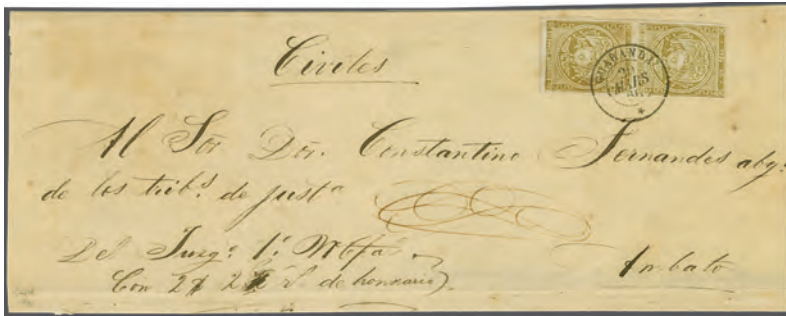 Civiles
Al Sor Dor. Constantino Fernandes abg.º
de los trib.s de just.a
Del Juzg.º 1.º
Con 2 de honorario).
Ambato